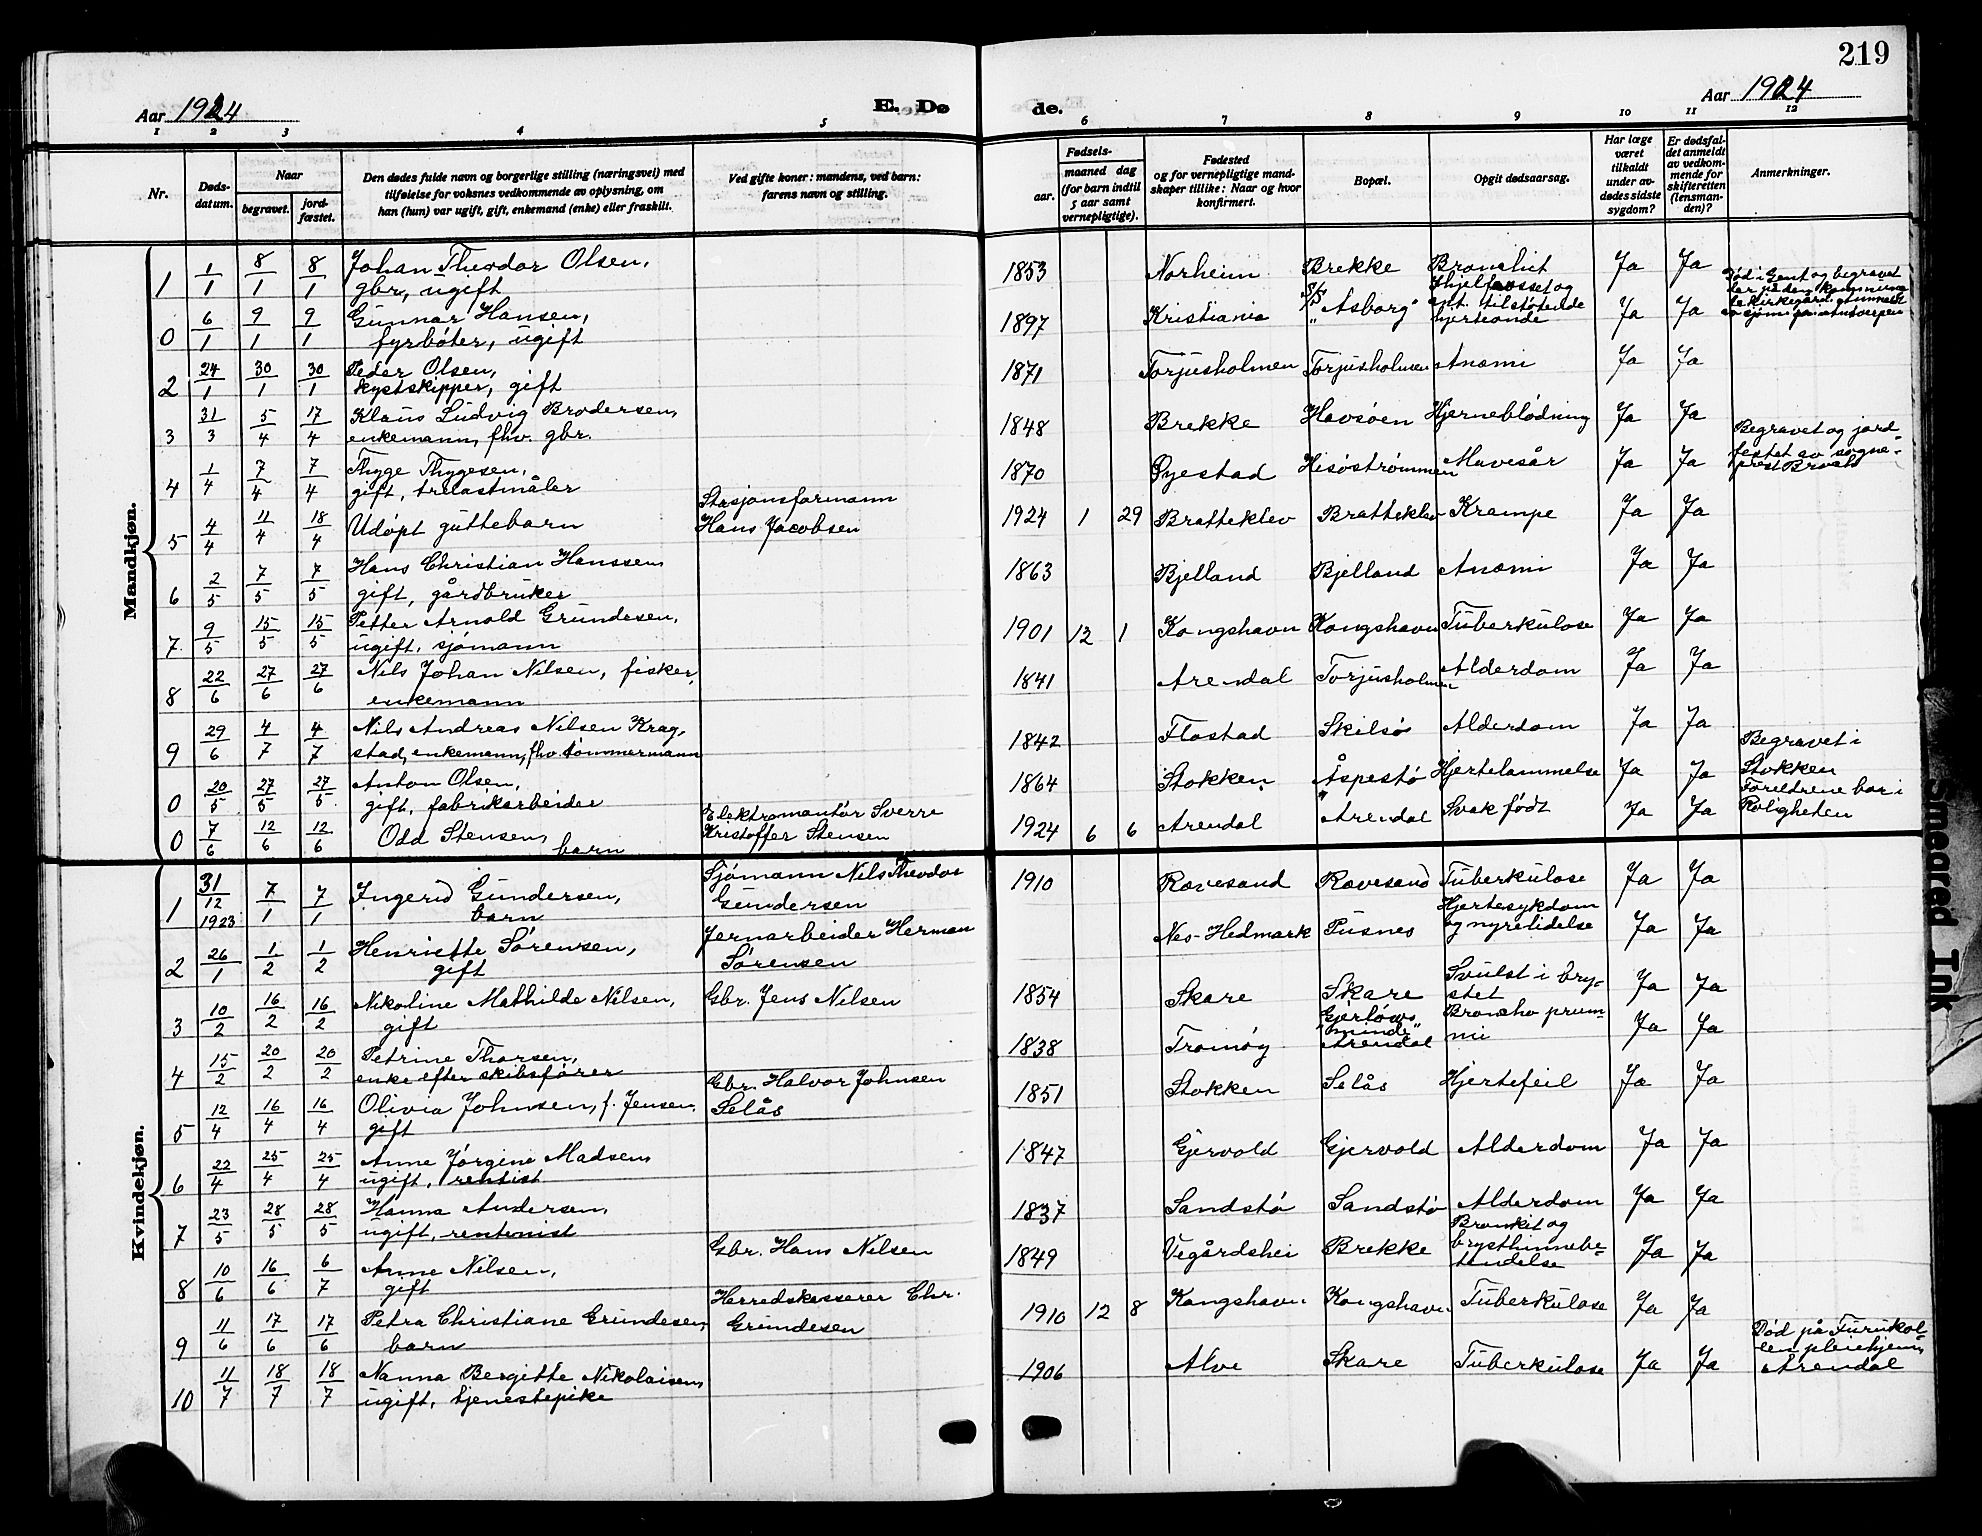 219
Aar 1924
E. Dø
de.
Aar 1924
1 2 3 4 5 6 7 8 9 10 11 12
Nr.
Døds-
datum.
Naar
begravet.
jord-
fæstet.
Den dødes fulde navn og borgerlige stilling (næringsvei) med
tilføielse for voksnes vedkommende av oplysning, om
han (hun) var ugift, gift, enkemand (enke) eller fraskilt.
Ved gifte koner: mandens, ved barn:
farens navn og stilling.
Fødsels-
aar.
maaned dag
(for barn indtil
5 aar samt
vernepligtige).
Fødested
og for vernepligtige mand-
skaper tillike: Naar og hvor
konfirmert.
Bopæl.
Opgit dødsaarsag.
Har læge
været
tilkaldt
under av-
dødes sidste
sygdom?
Er dødsfal-
det anmeldt
av vedkom-
mende for
skifteretten
(lensman-
den)?
Anmerkninger.
Mandkjøn.
1 1/1 8/1 8/1 Johan Theodor Olsen,
gbr, ugift
1853 Norheim Brekke Bronchit Ja Ja
0 6/1 9/1 9/1 Gunnar Hansen,
fyrbøter, ugift
1897 Kristiania S/S "Asborg" hjelpesset og
ant. tilstøtende
hjerteonde Ja Ja
Død i Gent og begravet
2 24/1 30/1 30/1 Peder Olsen,
kystskipper, gift
1871 Torjusholmen Torjusholmen Anæmi Ja Ja
3 31/3 5/4 17/4 Klaus Ludvig Brodersen,
enkemann, fhv. gbr.
1848 Brekke Havsøen Hjerneblødning Ja Ja
4 1/4 7/4 7/4 Thyge Thygesen,
gift, trelastmåler
1870 Øyestad Hisøstrømmen Mavesår Ja Ja
Begravet og jord-
festet av sogne-
prest
5 4/4 11/4 18/4 Udøpt guttebarn
Stasjonsformann
Hans Jacobsen
1924 1 29 Bratteklev Bratteklev Krampe Ja Ja
6 2/5 7/5 7/5 Hans Christian Hanssen
gift, gårdbruker
1863 Bjelland Bjelland Anæmi Ja Ja
7 9/5 15/5 15/5 Petter Arnold Grundesen,
ugift, sjømann
1901 12 1 Kongshavn Kongshavn Tuberkulose Ja Ja
8 22/6 27/6 27/6 Nils Johan Nilsen, fisker,
enkemann
1841 Arendal Torjusholmen Alderdom Ja Ja
9 29/6 4/7 4/7 Nils Andreas Nilsen Krag-
stad, enkemann, fhv. tømmermann
1842 Flostad Skilsø Alderdom Ja Ja
0 20/5 27/5 27/5 Anton Olsen,
gift, fabrikarbeider
1864 Stokken Åspestø Hjertelammelse Ja Ja
Begravet i
Stokken
0 7/6 12/6 12/6 Odd Stensen,
barn
Elektromontør Sverre
Kristoffer Stensen
1924 6 6 Arendal Arendal Svak født Ja Ja
Foreldrene bor i
Roligheten
Kvindekjøn.
1 31/12 1923 7/1 7/1 Ingerid Gundersen,
barn
Sjømann Nils Theodor
Gundersen
1910 Rævesand Rævesand Tuberkulose Ja Ja
2 26/1 1/2 1/2 Henriette Sørensen,
gift
Jernarbeider Herman
Sørensen
Nes-Hedmark Pusnes Hjertesykdom
og nyrelidelse Ja Ja
3 10/2 16/2 16/2 Nikoline Mathilde Nilsen,
gift
Gbr. Jens Nilsen
1854 Skare Skare Svulst i bry-
stet Ja Ja
4 15/2 20/2 20/2 Petrine Thorsen,
enke efter skibsfører
1838 Tromøy Gjerløws
"minde"
Arendal Broncho pneum-
ni Ja Ja
5 12/4 16/4 16/4 Olivia Johnsen, f. Jensen,
gift
Gbr. Halvor Johnsen
Selås
1851 Stokken Selås Hjertefeil Ja Ja
6 22/4 25/4 25/4 Anne Jørgine Madsen,
ugift, rentist
1847 Gjervold Gjervold Alderdom Ja Ja
7 23/5 28/5 28/5 Hanna Andersen,
ugift, rentenist
1837 Sandstø Sandstø Alderdom Ja Ja
8 10/6 16/6 6/7 Anne Nilsen,
gift
Gbr. Hans Nilsen
1849 Vegårdshei Brekke Bronkit og
brysthinnebe-
tendelse Ja Ja
9 11/6 17/6 17/6 Petra Christiane Grundesen,
barn
Herredskasserer Chr.
Grundesen
1910 12 8 Kongshavn Kongshavn Tuberkulose Ja Ja
10 11/7 18/7 18/7 Nanna Bergitte Nikolaisen,
ugift, tjenestepike
1906 Alve Skare Tuberkulose Ja Ja
Død på Furukol-
len pleiehjem,
Arendal
Smeared Ink